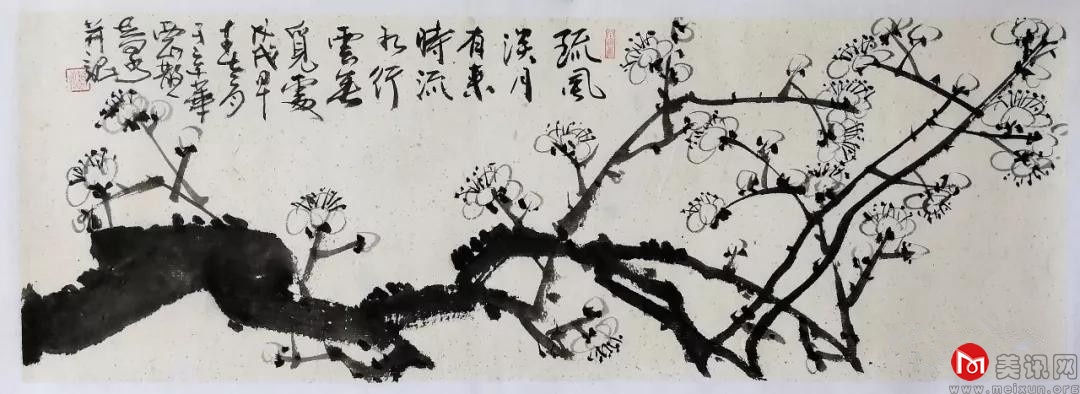 疏風
淡月
有來
時流
水行
雲無
覓處
戊戌年
春
于京華
并記
美讯网
www.meixun.org